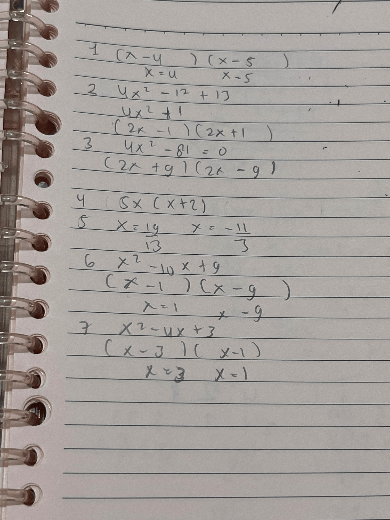 1 (x-4 ) (x-5 )
x=4 x-5
2 4x² -12 +13
4x² +1
(2x -1 )(2x+1 )
3 4x² -81 = 0
(2x +9)(2x -9)
4 5x (x+2)
5 x=19/13 x= -11/3
6 x² -10x +9
(x-1 )(x-9 )
x=1 x-9
7 x² -4x+3
(x-3 )( x-1)
x=3 x=1